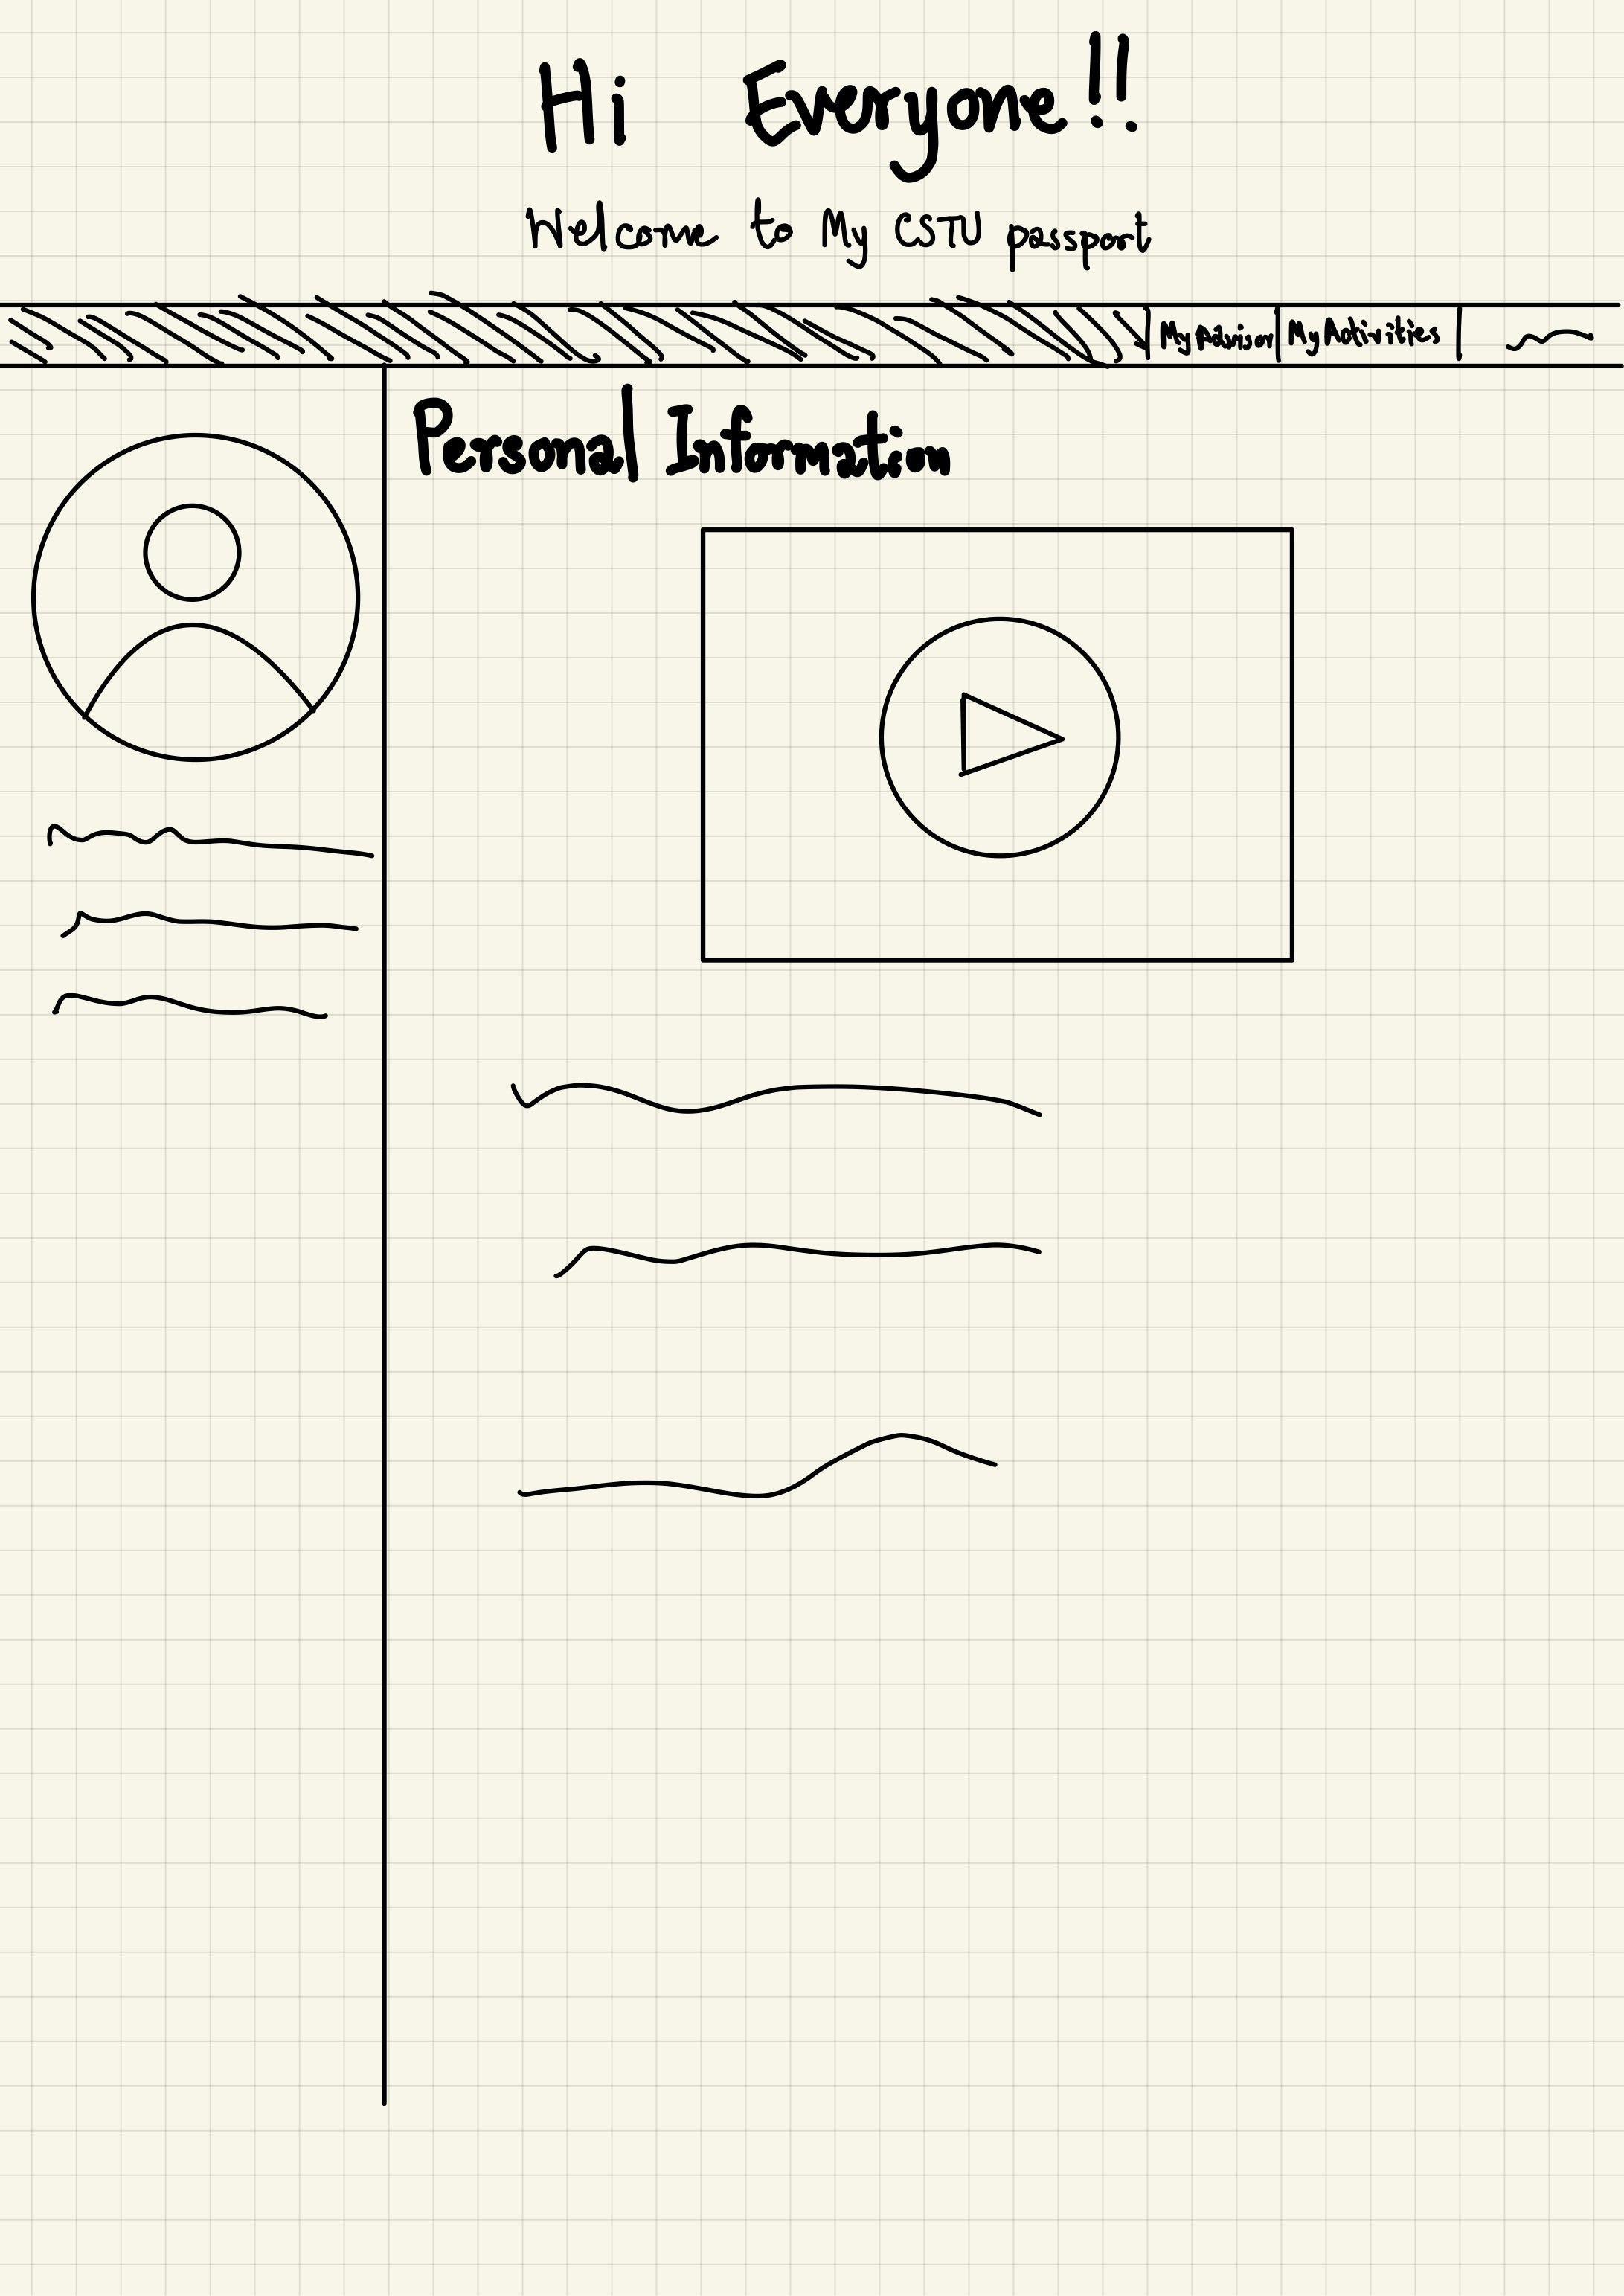 Hi Everyone!!
Welcome to My CSTU passport
My Advisor My Activities
Personal Information